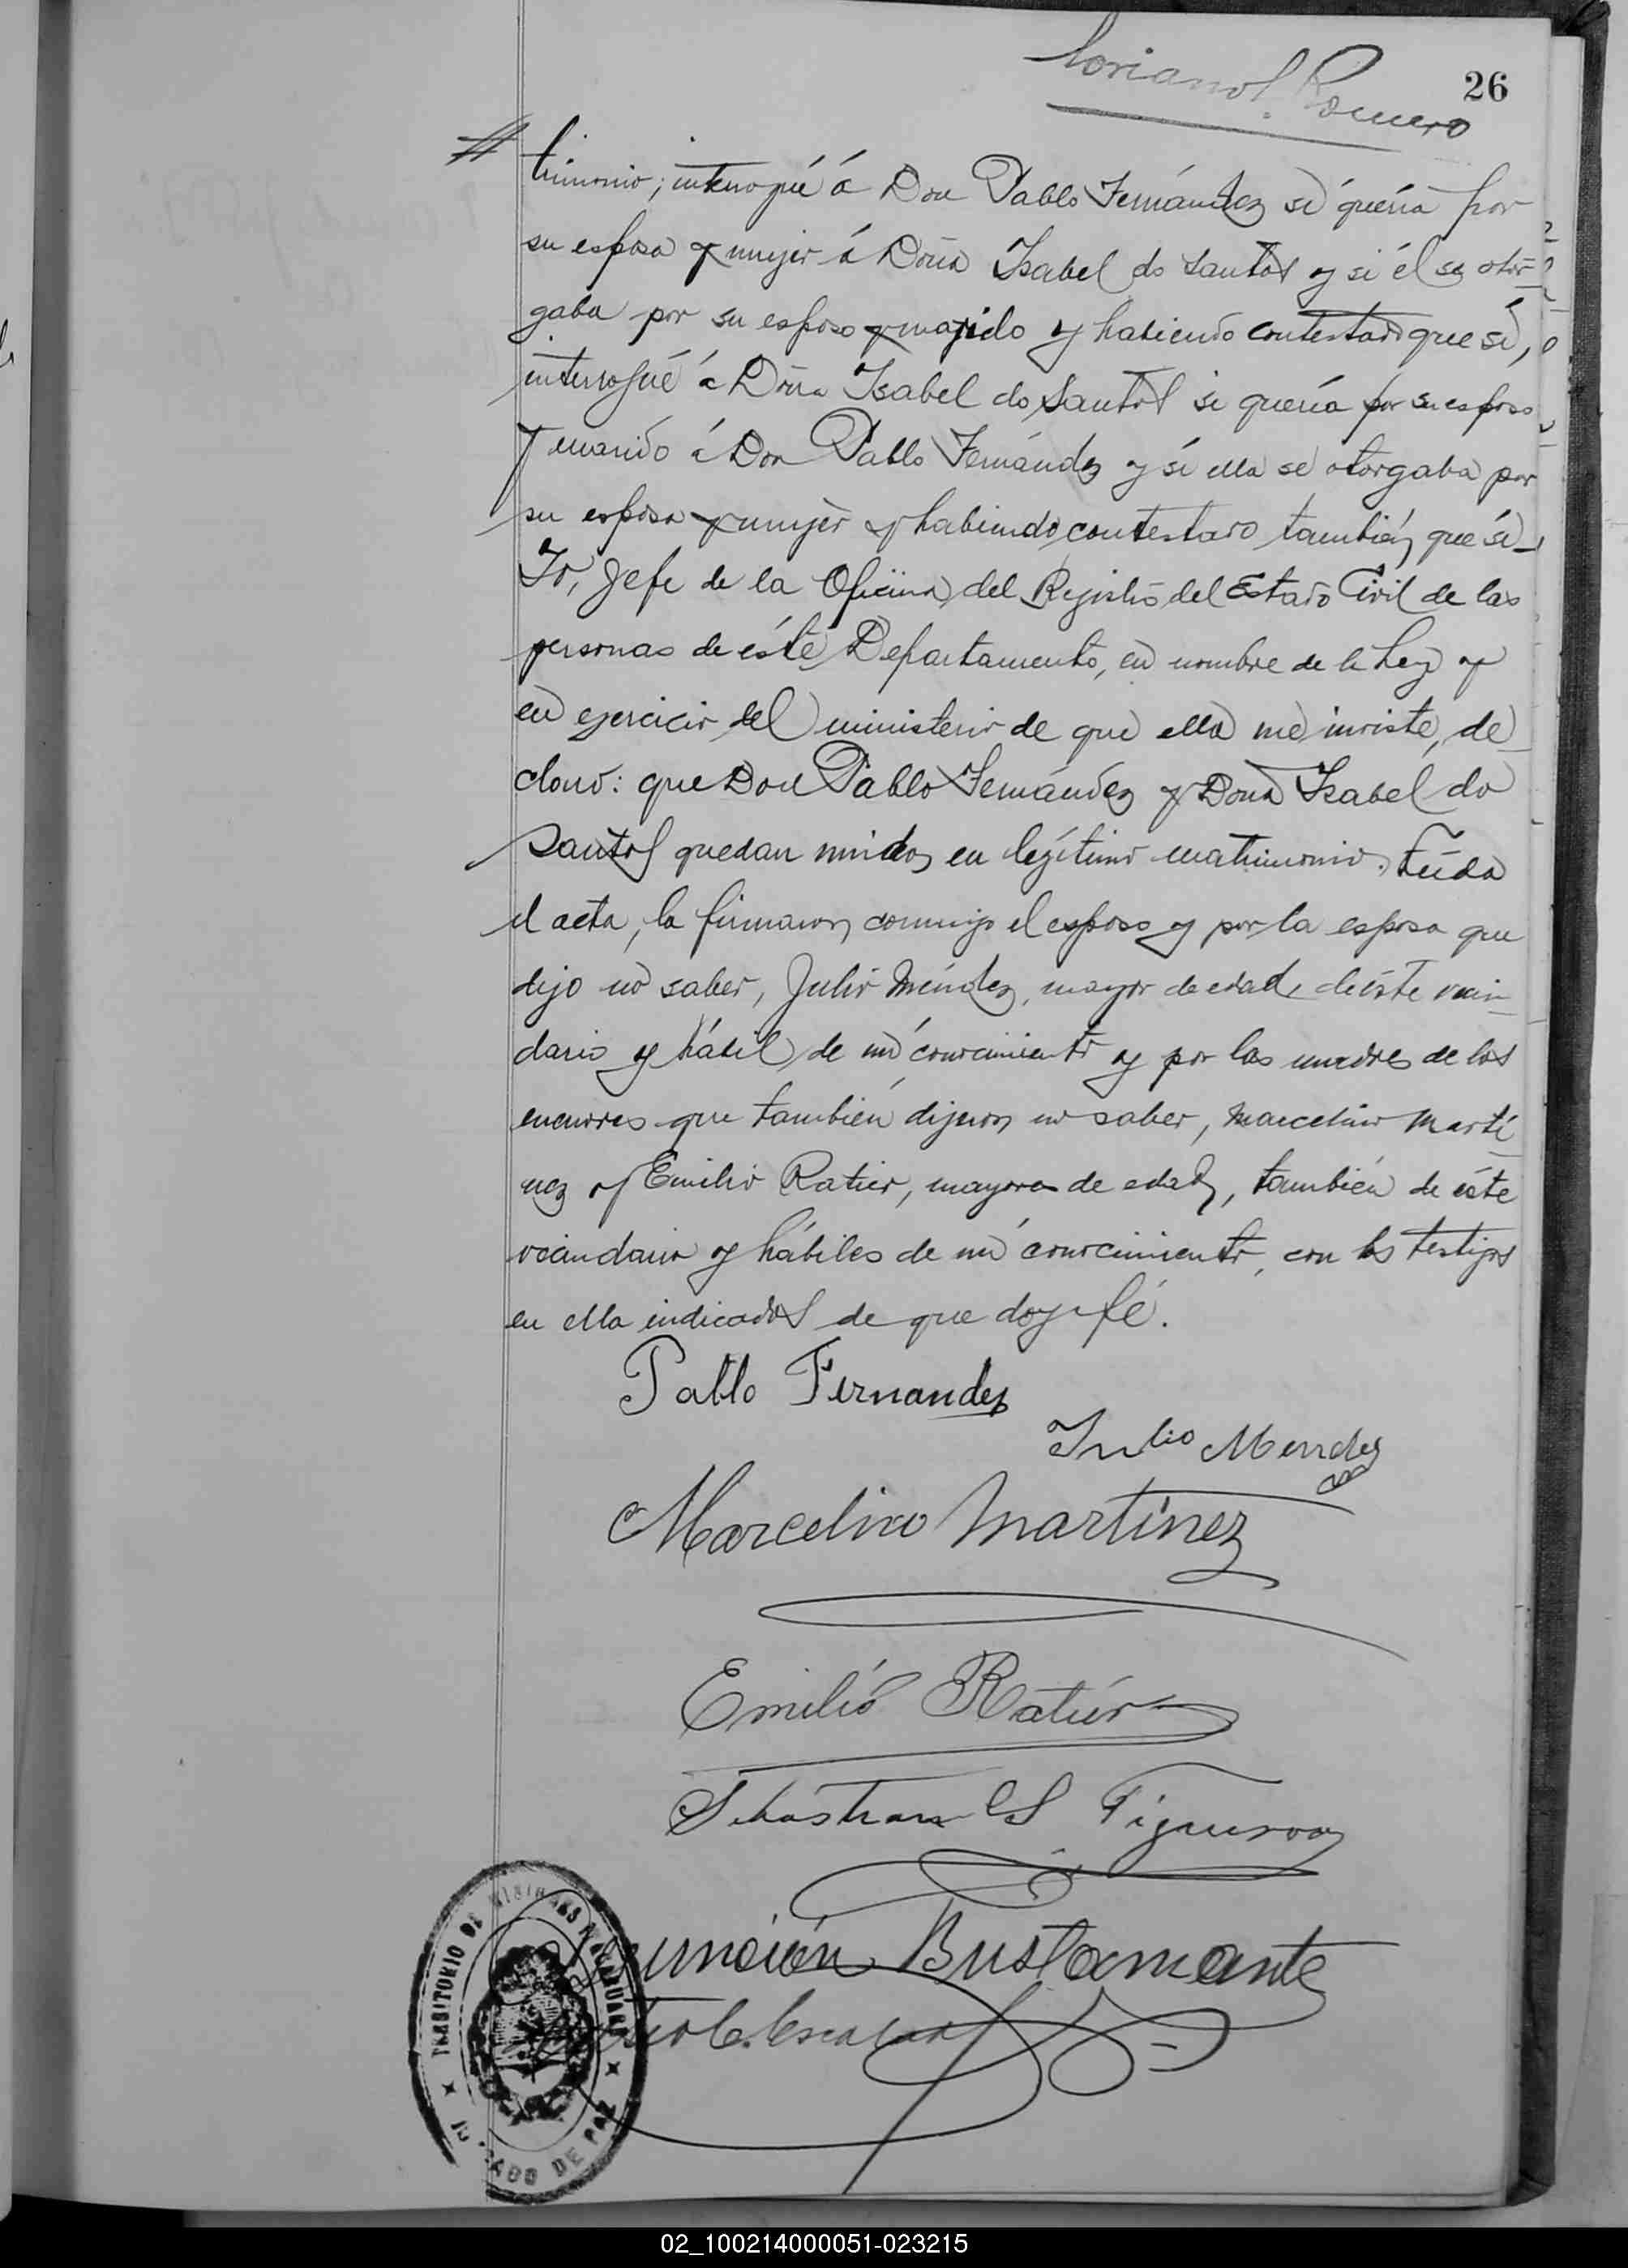 26
Romero
trimonio; interrogué á Don Pablo Fernández si quería por
su esposa y mujer á Doña Isabel do Santos y si él se otor-
gaba por su esposo y marido y habiendo contestado que sí,
interrogué á Doña Isabel do Santos si quería por su esposo
y marido á Don Pablo Fernández y sí ella se otorgaba por
su esposa y mujer y habiendo contestado también que sí-
Yo, Jefe de la Oficina del Registro del Estado Civil de las
personas de éste Departamento, en nombre de la Ley y
en ejercicio del ministerio de que ella me inviste, de-
claro: que Don Pablo Fernández y Doña Isabel do
Santos quedan unidos en legítimo matrimonio. Leída
el acta, la firmaron conmigo el esposo y por la esposa que
dijo no saber, Julio Méndez, mayor de edad, de éste vecin-
dario y hábil de mi conocimiento y por las madres de los
menores que también dijeron no saber, Marcelino Martí-
nez y Emilio Ratier, mayores de edad, también de éste
vecindario y hábiles de mi conocimiento, con los testigos
en ella indicados de que doy fé.
Pablo Fernandez
Julio Mendez
Marcelino Martínez
Emilio Ratier
Sebastian S Figueroa
Asunción Bustamante
TERRITORIO DE MISIONES
JUZGADO DE PAZ
02_100214000051-023215